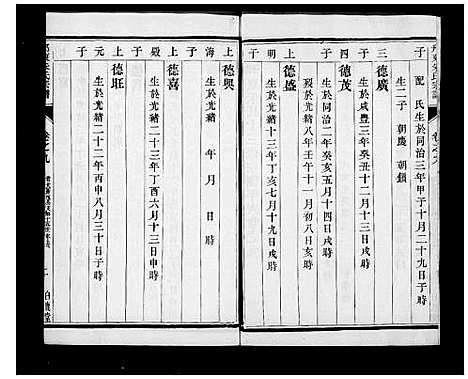 子
配 氏生於同治三年甲子十月二十九日子時
生二子 朝慶 朝鎖
三 德廣
子 生於咸豐三年癸丑十二月十三日子時
四 德茂
子 生於同治二年癸亥五月十四日戌時
歿於光緒八年壬午十一月初八日亥時
上 德盛
明子 生於光緒十三年丁亥七月十九日戌時
上 德興
海子 生於光緒 年 月 日 時
上 德喜
殿子 生於光緒二十三年丁酉六月十三日申時
上 德旺
元子 生於光緒二十二年丙申八月三十日子時
卷之九